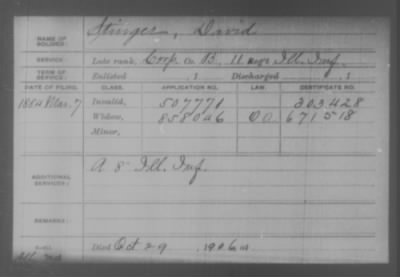 NAME OF SOLDIER: Stinger, David
SERVICE: Late rank, Corp. Co. B, 11 Reg't Ill. Inf.
TERM OF SERVICE: Enlisted , 1 Discharged , 1
DATE OF FILING. CLASS. APPLICATION NO. LAW. CERTIFICATE NO.
1884 Mar. 7 Invalid, 507771 303428
Widow, 858046 O.A. 671518
Minor,
ADDITIONAL SERVICES: A 8" Ill. Inf.
REMARKS:
Died Oct 29 1906 at